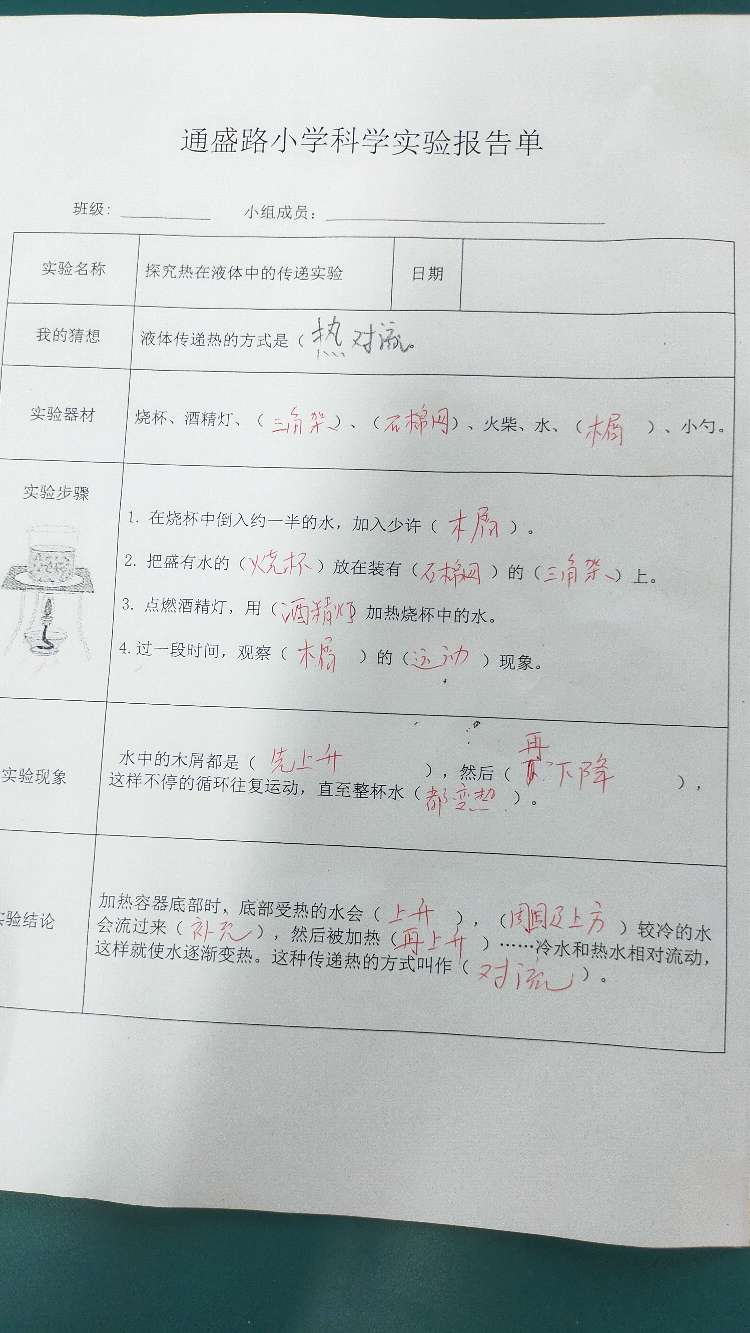 通盛路小学科学实验报告单
班级：________ 小组成员：________________
实验名称 探究热在液体中的传递实验 日期
我的猜想 液体传递热的方式是（热对流。
实验器材 烧杯、酒精灯、（三角架）、（石棉网）、火柴、水、（木屑）、小勺。
实验步骤
1. 在烧杯中倒入约一半的水，加入少许（木屑）。
2. 把盛有水的（烧杯）放在装有（石棉网）的（三角架）上。
3. 点燃酒精灯，用（酒精灯 加热烧杯中的水。
4.过一段时间，观察（木屑）的（运动）现象。
实验现象
水中的木屑都是（先上升），然后（再下降），
这样不停的循环往复运动，直至整杯水（都变热）。
实验结论
加热容器底部时，底部受热的水会（上升），（周围及上方）较冷的水
会流过来（补充），然后被加热（再上升）……冷水和热水相对流动，
这样就使水逐渐变热。这种传递热的方式叫作（对流）。